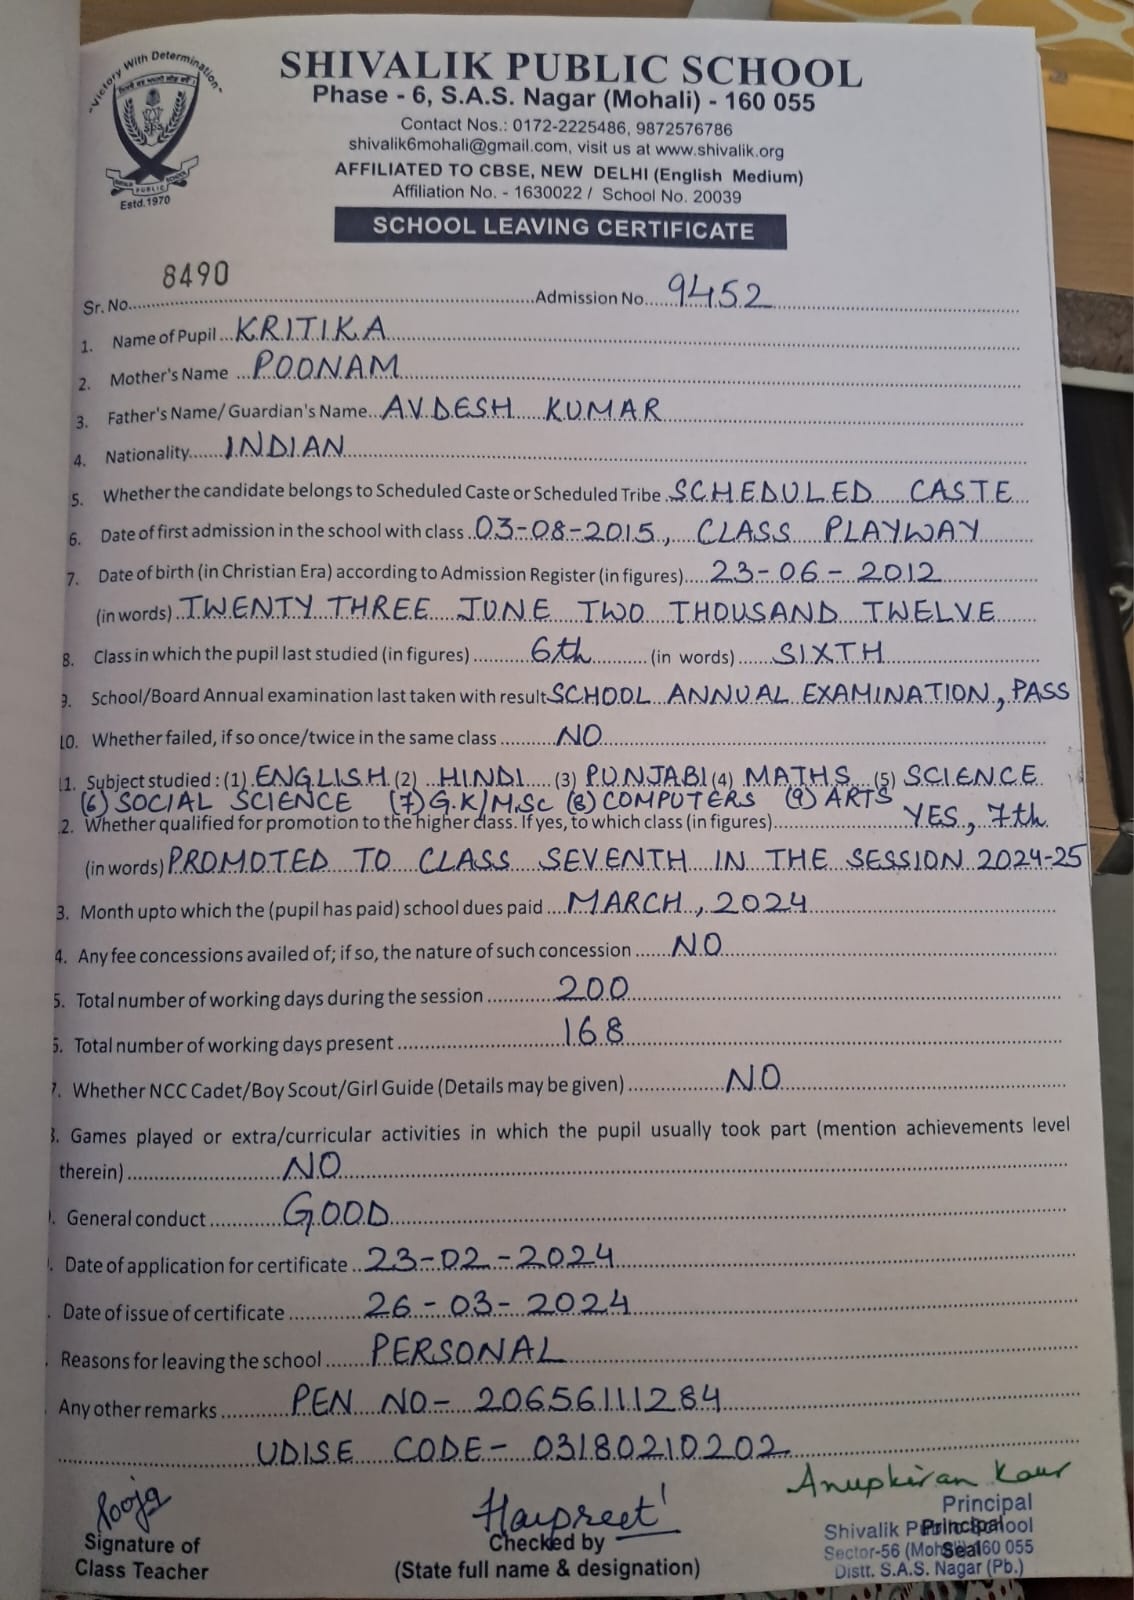 "Victory With Determination"
SPS
SHIVALIK PUBLIC SCHOOL
Estd.1970
SHIVALIK PUBLIC SCHOOL
Phase - 6, S.A.S. Nagar (Mohali) - 160 055
Contact Nos.: 0172-2225486, 9872576786
shivalik6mohali@gmail.com, visit us at www.shivalik.org
AFFILIATED TO CBSE, NEW DELHI (English Medium)
Affiliation No. - 1630022 / School No. 20039
SCHOOL LEAVING CERTIFICATE
Sr. No. 8490 Admission No. 9452
1. Name of Pupil KRITIKA
2. Mother's Name POONAM
3. Father's Name/ Guardian's Name AVDESH KUMAR
4. Nationality INDIAN
5. Whether the candidate belongs to Scheduled Caste or Scheduled Tribe SCHEDULED CASTE
6. Date of first admission in the school with class 03-08-2015, CLASS PLAYWAY
7. Date of birth (in Christian Era) according to Admission Register (in figures) 23-06-2012
(in words) TWENTY THREE JUNE TWO THOUSAND TWELVE
8. Class in which the pupil last studied (in figures) 6th (in words) SIXTH
9. School/Board Annual examination last taken with result SCHOOL ANNUAL EXAMINATION, PASS
10. Whether failed, if so once/twice in the same class NO
1. Subject studied : (1) ENGLISH (2) HINDI (3) PUNJABI (4) MATHS (5) SCIENCE
(6) SOCIAL SCIENCE (7) G.K/M.Sc (8) COMPUTERS (9) ARTS
2. Whether qualified for promotion to the higher class. If yes, to which class (in figures) YES, 7th
(in words) PROMOTED TO CLASS SEVENTH IN THE SESSION 2024-25
3. Month upto which the (pupil has paid) school dues paid MARCH, 2024
4. Any fee concessions availed of; if so, the nature of such concession NO
5. Total number of working days during the session 200
6. Total number of working days present 168
7. Whether NCC Cadet/Boy Scout/Girl Guide (Details may be given) NO
8. Games played or extra/curricular activities in which the pupil usually took part (mention achievements level
therein) NO
. General conduct GOOD
. Date of application for certificate 23-02-2024
. Date of issue of certificate 26-03-2024
. Reasons for leaving the school PERSONAL
. Any other remarks PEN NO- 20656111284
UDISE CODE- 03180210202
Pooja
Signature of
Class Teacher
Harpreet
Checked by
(State full name & designation)
Anupkiran Kaur
Principal
Seal
Principal
Shivalik Public School
Sector-56 (Mohali) 160 055
Distt. S.A.S. Nagar (Pb.)